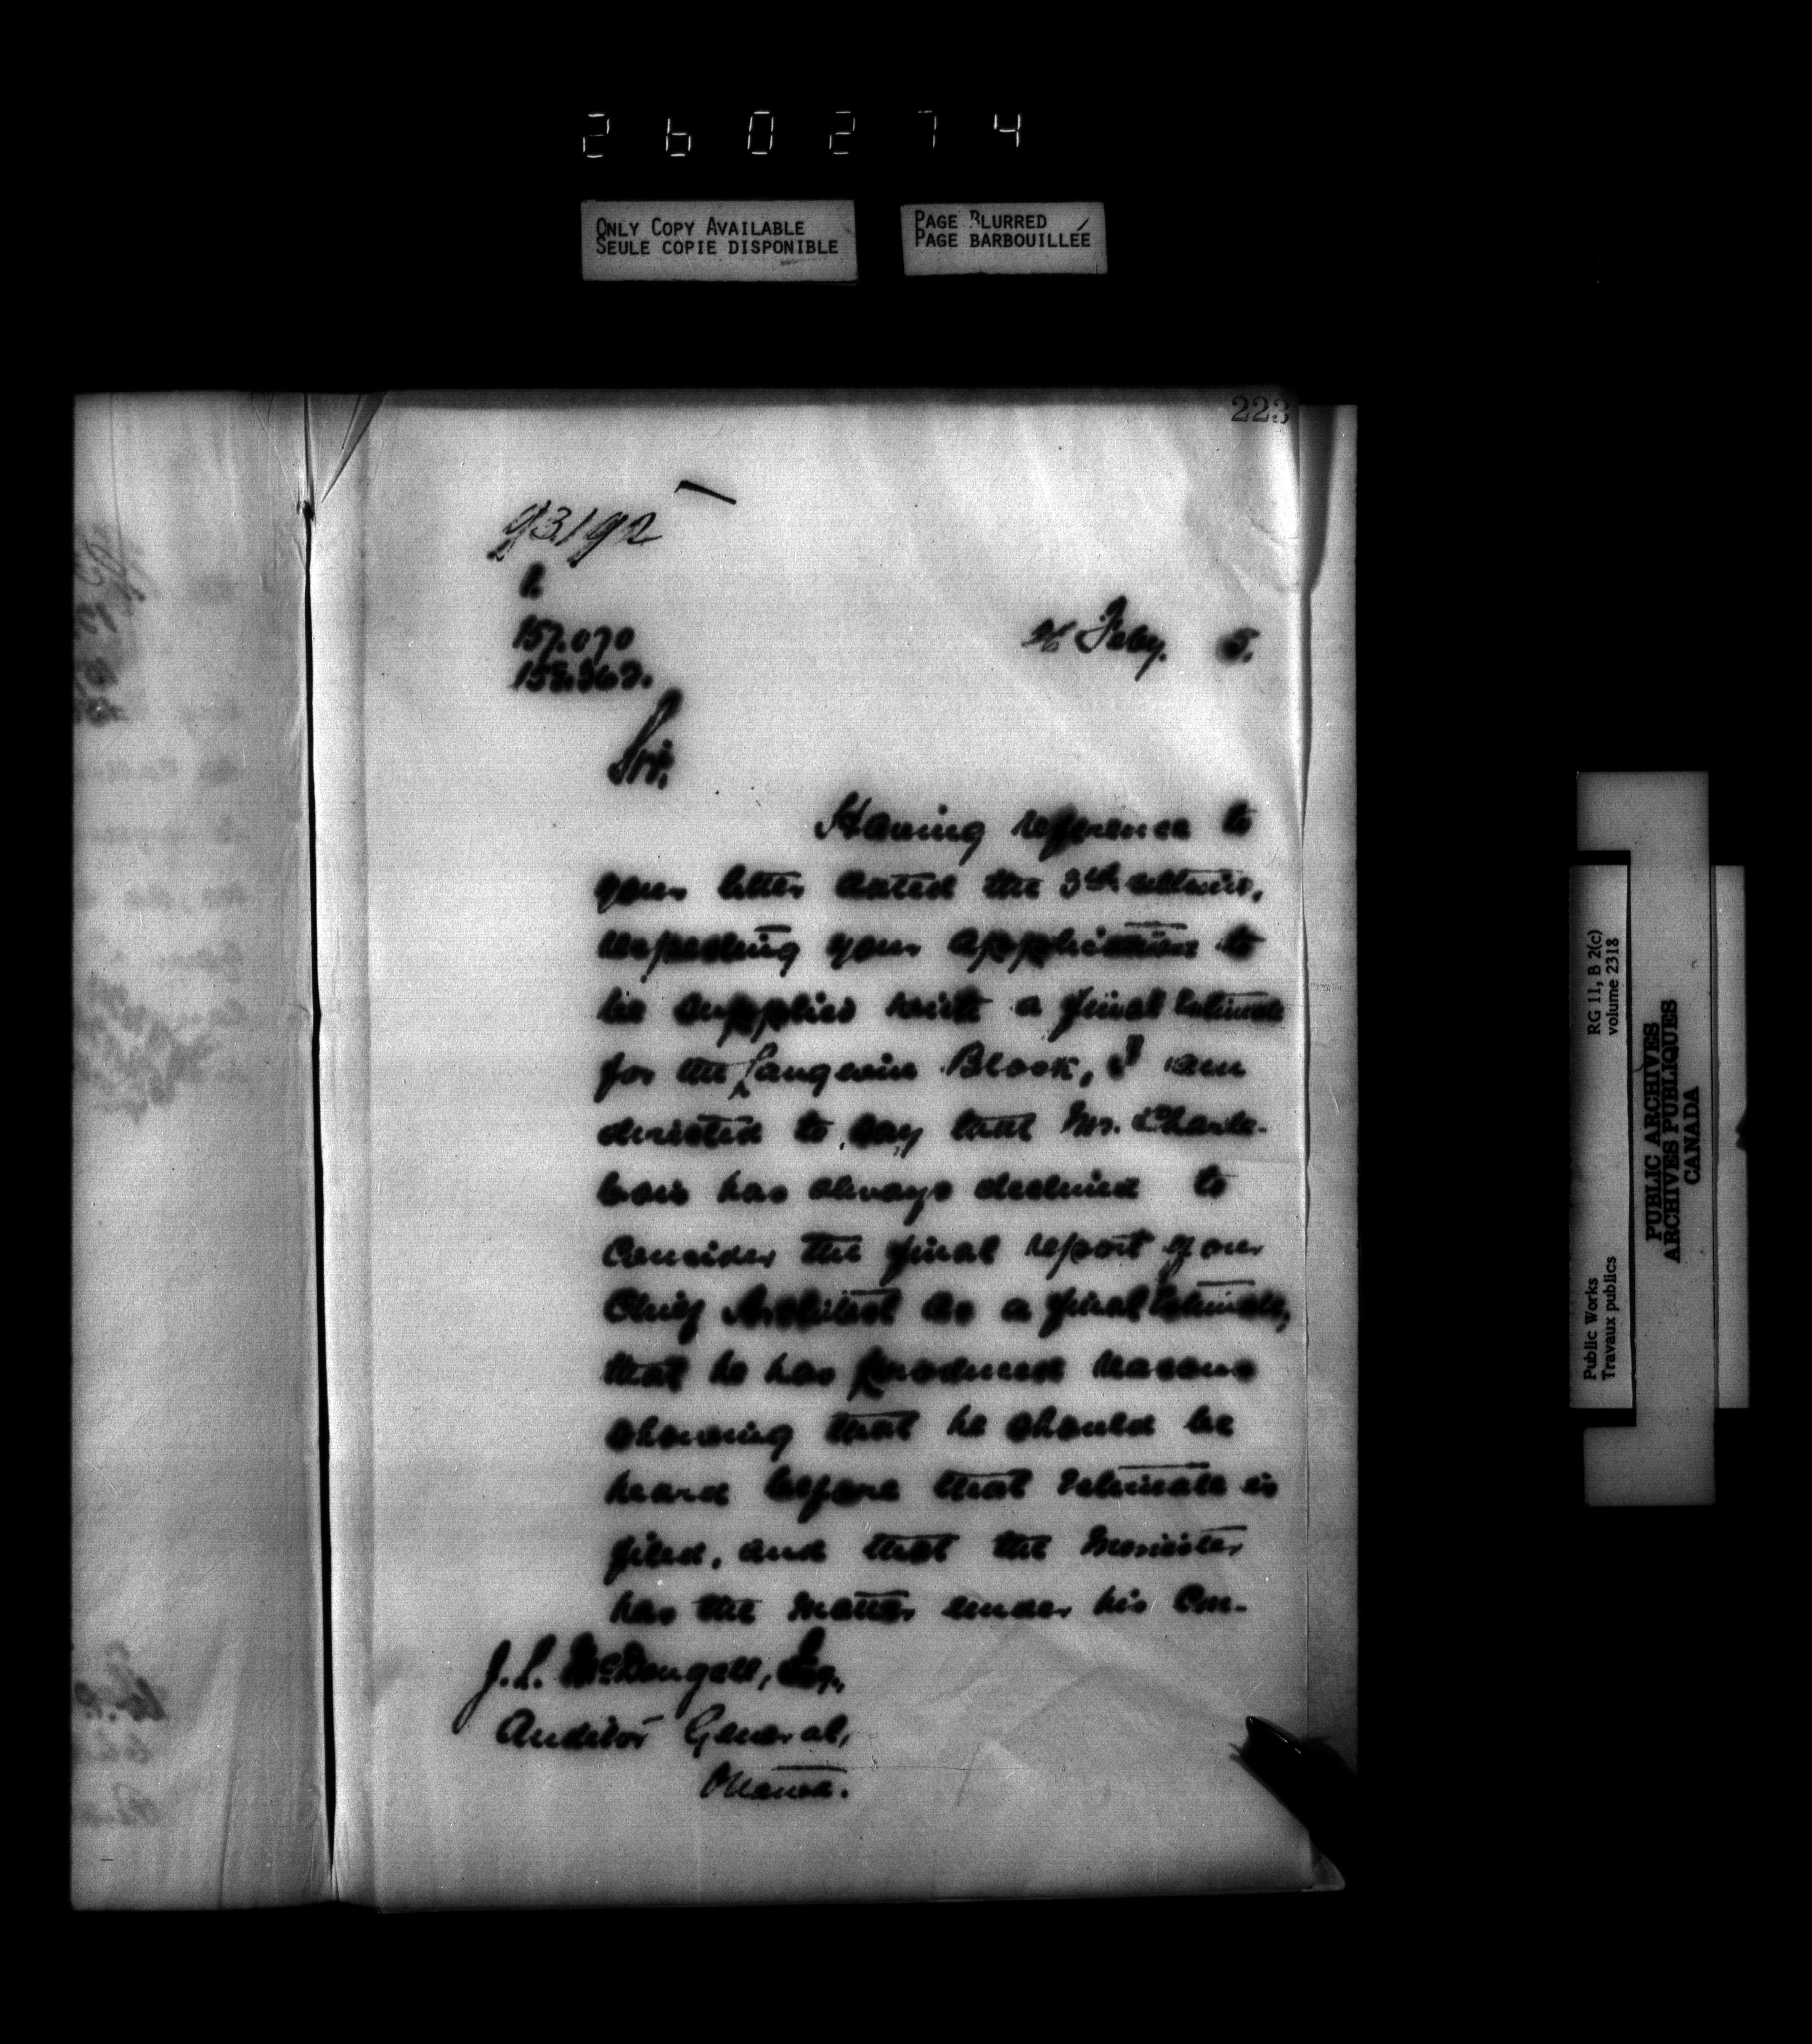 260274
ONLY COPY AVAILABLE
SEULE COPIE DISPONIBLE
PAGE BLURRED
PAGE BARBOUILLÉE
223
93192
157.070
Feby. 5.
Sir,
Having reference to
your letter dated the 3th ultimo,
respecting your application to
be supplied with a final Estimate
for the Langevin Block, I am
directed to say that Mr. Charle-
bois has always declined to
consider the final report of our
Chief Architect as a final Estimate,
that he has produced reasons
showing that he should be
heard before that Estimate is
filed, and that the Minister
has the matter under his Con-
J. L. McDougall, Esq.,
Auditor General,
Ottawa.
Public Works
Travaux publics
RG 11, B 2(c)
volume 2318
PUBLIC ARCHIVES
ARCHIVES PUBLIQUES
CANADA